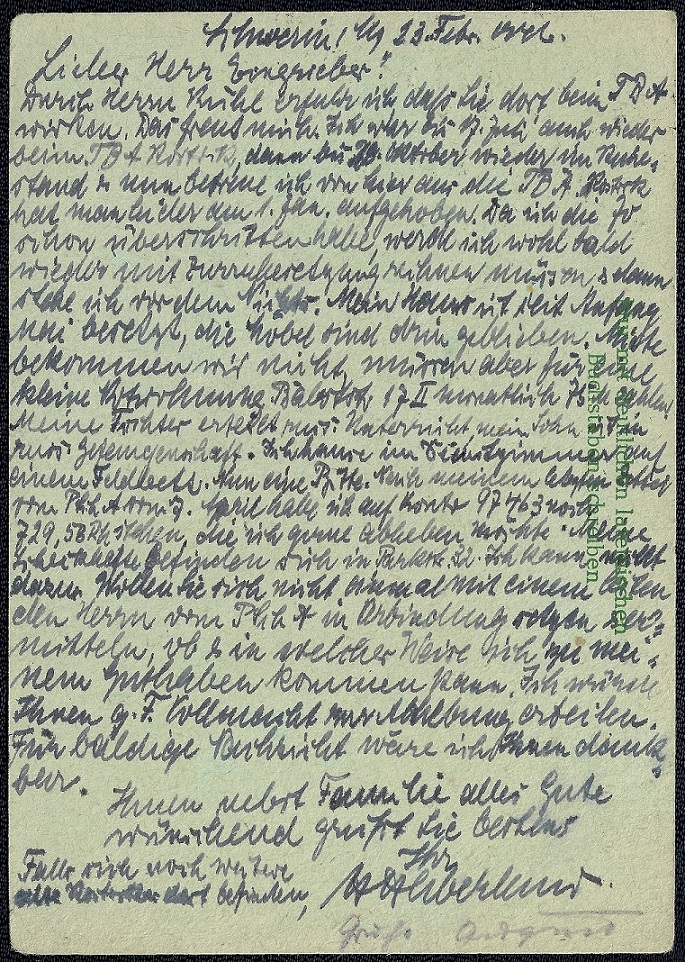 Schwerin, 23. Febr.
Lieber Herr
Durch Herrn Kuhl erfuhr ich daß Sie dort beim TBA
wirken. Das freut mich. Ich war bis 17. Juli auch wieder
beim TBA Rostock, dann bis 28. Oktober wieder im Ruhe-
stand & nun betreue ich von hier aus die TBA. Rostock
hat man leider am 1. Jan. aufgehoben. Da ich die 70
schon überschritten habe, werde ich wohl bald
wieder mit Zurruhesetzung rechnen müssen & dann
stehe ich vor dem Nichts. Mein Haus ist seit Anfang
Mai besetzt, die Möbel sind drin geblieben. Miete
bekommen wir nicht, müssen aber für eine
kleine Wohnung 17 II monatlich zahlen
Meine Tochter erteilt russ. Unterricht, mein Sohn ist in
russ. Gefangenschaft. Ich hause im Dienstzimmer auf
einem Feldbett. Nun eine Bitte. Nach meinem
vom PSchA vom 7. April habe ich auf Konto 97463 noch
729,58 RM stehen, die ich gerne abheben möchte. Meine
Scheckhefte befinden sich in Parkstr. 22. Ich kann nicht
dazu. Wollen Sie sich nicht einmal mit einem
den Herrn vom PSchA in Verbindung setzen & er-
mitteln, ob & in welcher Weise ich zu mei-
nem Guthaben kommen kann. Ich würde
Ihnen g. F. Vollmacht zur Abhebung erteilen.
Für baldige Nachricht wäre ich Ihnen dank-
bar.
Ihnen nebst Familie alles Gute
wünschend grüßt Sie bestens
Ihr
Falls sich noch weitere
alte Rostocker dort befinden,
Grüße
Nur mit deutlichen lateinischen
Buchstaben schreiben